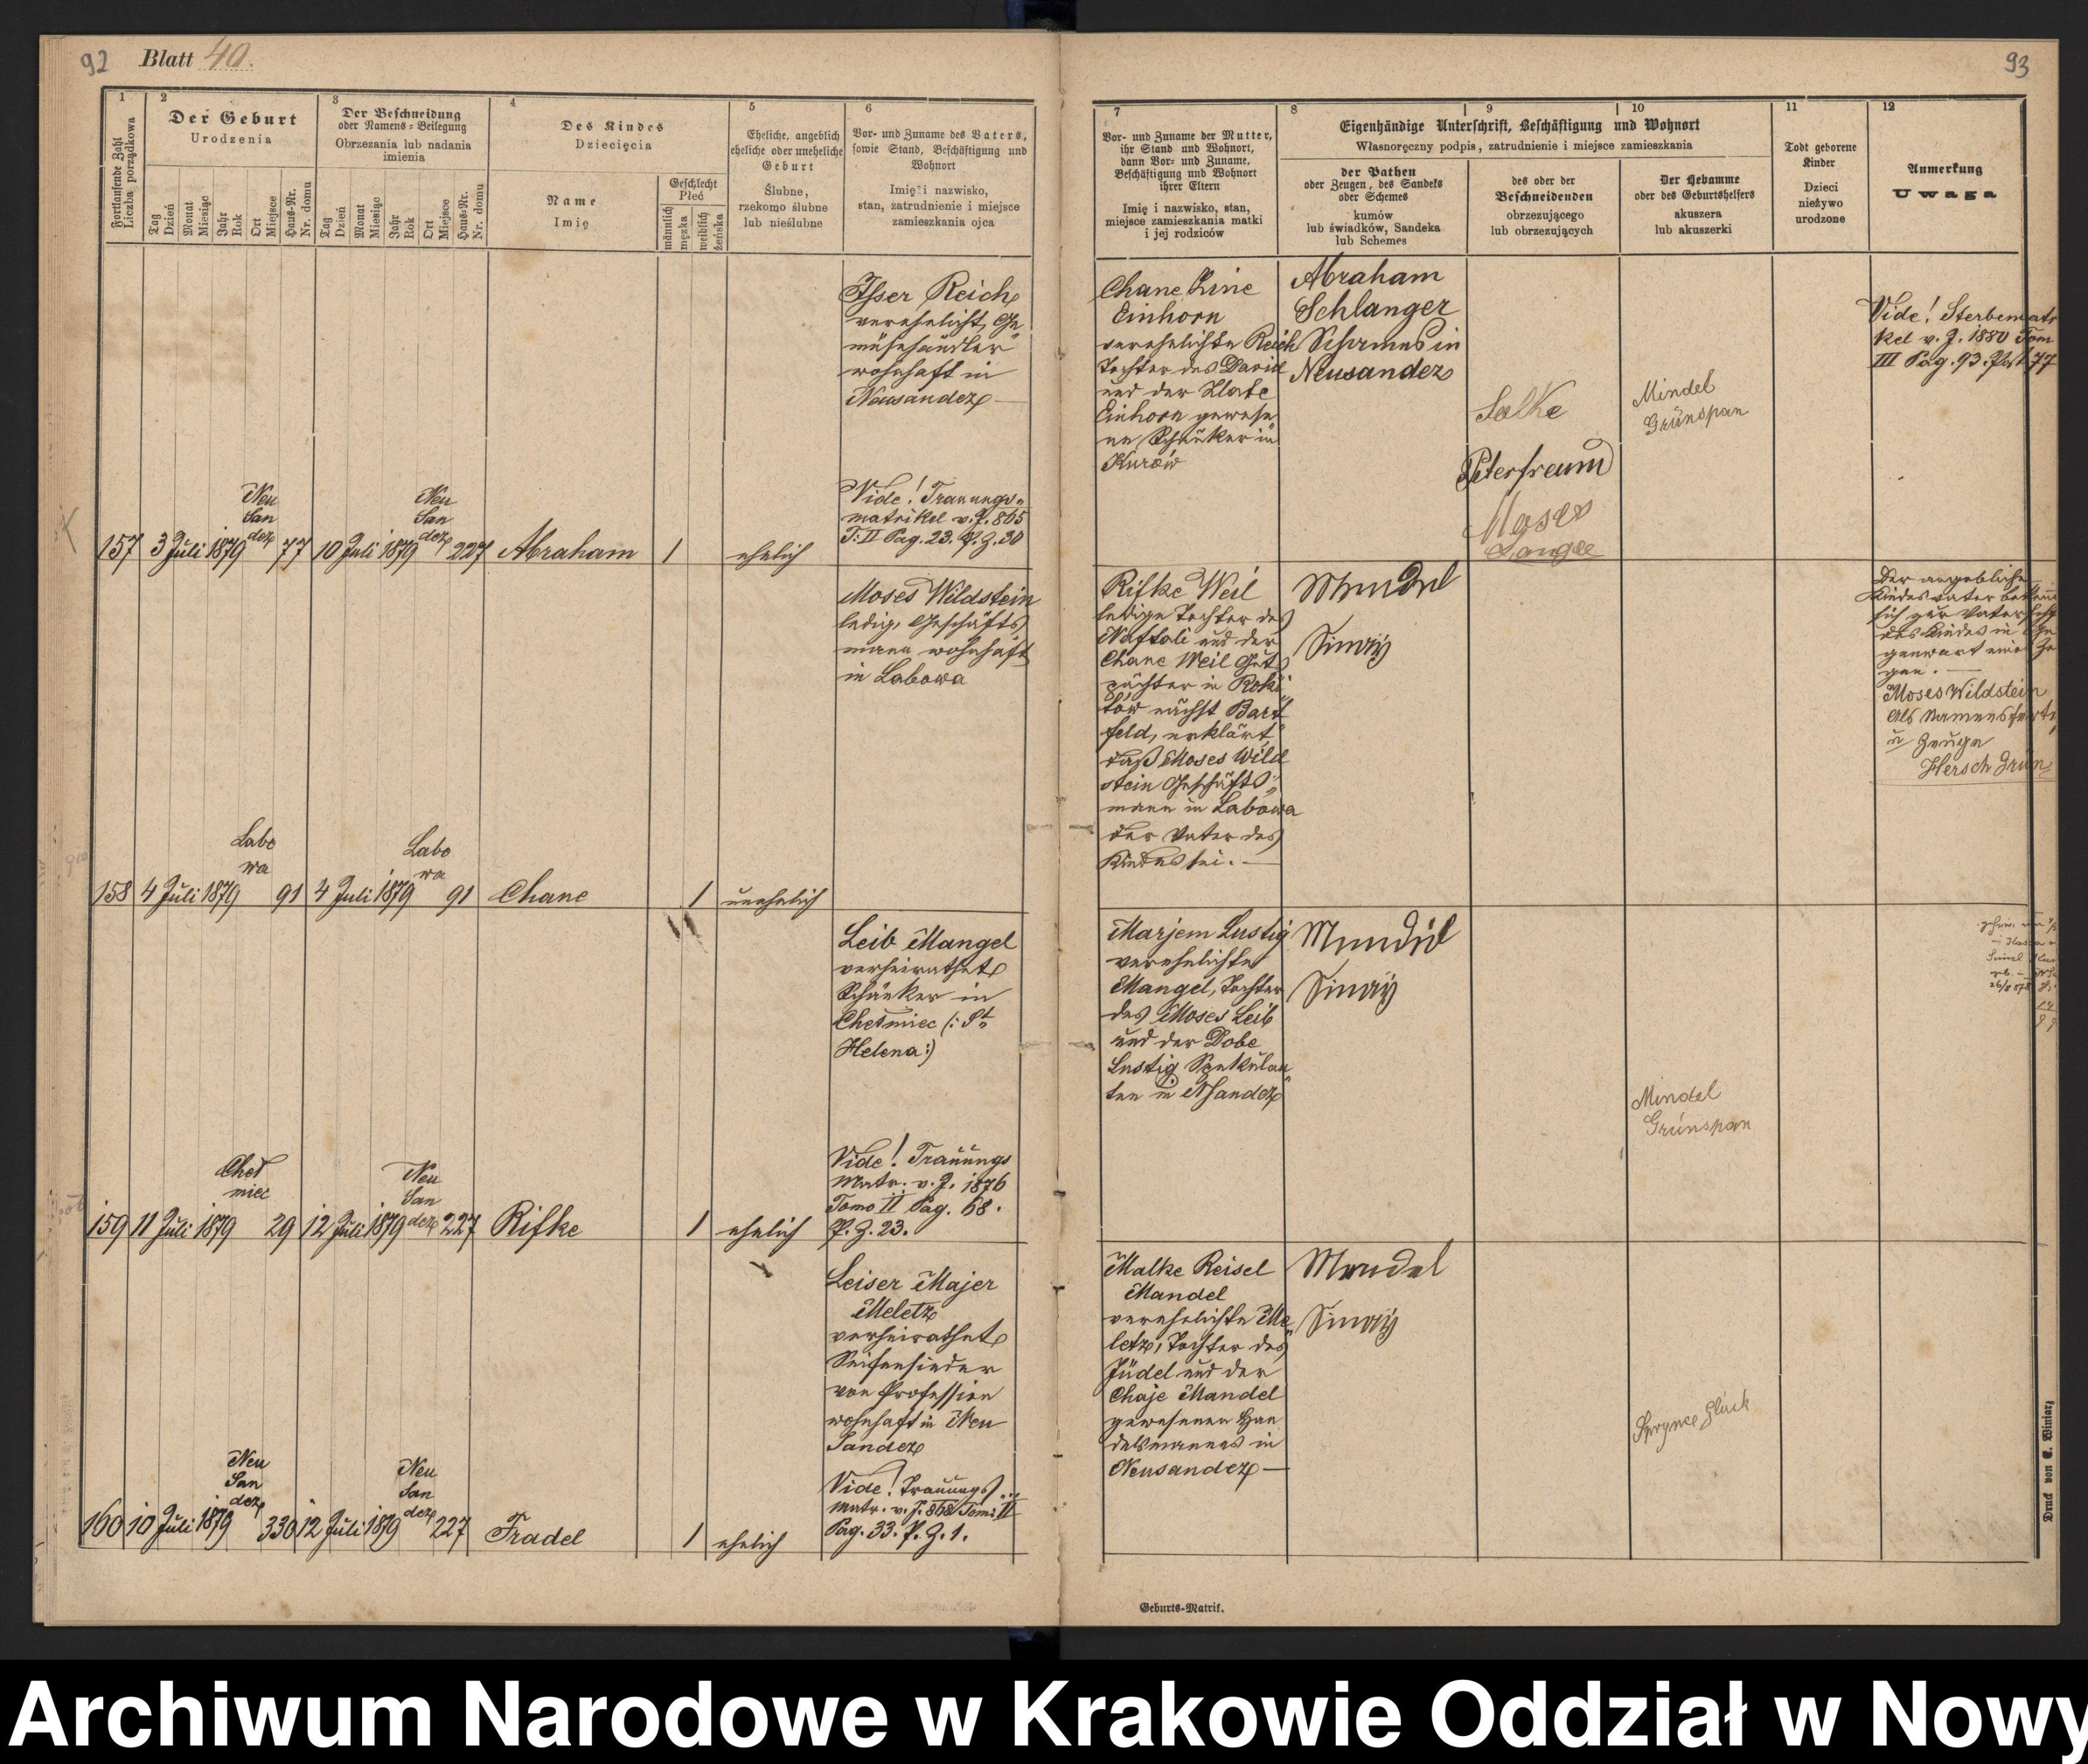 92 Blatt 40.
1
2
Der Geburt
Urodzenia
3
Der Beschneidung
oder Namens-Beilegung
Obrzezania lub nadania
imienia
4
Des Kindes
Dziecięcia
5
Eheliche, angeblich
eheliche oder uneheliche
Geburt
Ślubne,
rzekomo ślubne
lub nieślubne
6
Vor- und Zuname des Vaters,
sowie Stand, Beschäftigung und
Wohnort
Imię i nazwisko,
stan, zatrudnienie i miejsce
zamieszkania ojca
Fortlaufende Zahl
Liczba porządkowa
Tag
Dzień
Monat
Miesiąc
Jahr
Rok
Ort
Miejsce
Haus-Nr.
Nr. domu
Tag
Dzień
Monat
Miesiąc
Jahr
Rok
Ort
Miejsce
Haus-Nr.
Nr. domu
Name
Imię
Geschlecht
Płeć
männlich
męzka
weiblich
żeńska
Isser Reich
verehelicht, Ge
müsehändler
wohnhaft in
Neusandez
Vide! Trauungs-
matrikel v. J. 865
T: II Pag. 23. P. Z. 30
157 3 Juli 1879 Neu San dez 77 10 Juli 1879 Neu San dez 227 Abraham 1 ehelich
Moses Wildstein
ledig, Geschäfts
mann wohnhaft
in Labowa
158 4 Juli 1879 Labo wa 91 4 Juli 1879 Labo wa 91 Chane 1 unehelich
Leib Mangel
verheirathet
Schänker in
Chełmiec (: St
Helena :)
Vide! Trauungs
Matr. v. J. 1876
Tomo II Pag. 68.
P. Z. 23.
159 11 Juli 1879 Cheł miec 29 12 Juli 1879 Neu San dez 227 Rifke 1 ehelich
Leiser Majer
Meletz
verheirathet
Seifensieder
von Profession
wohnhaft in Neu
Sandez
Vide! Trauungs
Matr. v. J. 868 Tom: II
Pag. 33. P. Z. 1.
160 10 Juli 1879 Neu San dez 330 12 Juli 1879 Neu San dez 227 Fradel 1 ehelich
93
7
Vor- und Zuname der Mutter,
ihr Stand und Wohnort,
dann Vor- und Zuname,
Beschäftigung und Wohnort
ihrer Eltern
Imię i nazwisko, stan,
miejsce zamieszkania matki
i jej rodziców
8
9
10
Eigenhändige Unterschrift, Beschäftigung und Wohnort
Własnoręczny podpis, zatrudnienie i miejsce zamieszkania
der Pathen
oder Zeugen, des Sandeks
oder Schemes
kumów
lub świadków, Sandeka
lub Schemes
des oder der
Beschneidenden
obrzezującego
lub obrzezujących
Der Hebamme
oder des Geburtshelfers
akuszera
lub akuszerki
11
Todt geborene
Kinder
Dzieci
nieżywo
urodzone
12
Anmerkung
Uwaga
Chane Rine
Einhorn
verehelichte Reich
Tochter des David
und der Zlate
Einhorn gewese
ne Schänker in
Kurów
Abraham
Schlanger
Schames in
Neusandez
Salke
Peterfreund
Moses
Mindel
Grünspan
Vide! Sterbematr
kel v. J. 1880 Tom
III Pag. 93. 77
Rifke Weil
ledige Tochter des
Naftali und der
Chane Weil Guts
pächter in Roki
tow nächst Bart
feld, erklärt
daß Moses Wild
stein Geschäfts
mann in Labowa
der Vater des
Kindes sei.
Mendel
Simaÿ
Der angebliche
Kindesvater
sich zur Vaterschft
des Kindes in Ge
genwart
gen.
Moses Wildstein
Als Namensferti
u Zeuge
Hersch Grün
Marjem Lustig
verehelichte
Mangel, Tochter
des Moses Leib
und der Dobe
Lustig Spekulan
ten in NSandez
Mendel
Simaÿ
Mindel
Grünspan
Malke Reisel
Mandel
verehelichte Me
letz, Tochter des
Judel und der
Chaje Mandel
gewesenen Han
delsmannes in
Neusandez
Mendel
Simaÿ
Glück
Druck von E. Winiarz
Geburts-Matrik.
Archiwum Narodowe w Krakowie Oddział w Nowy